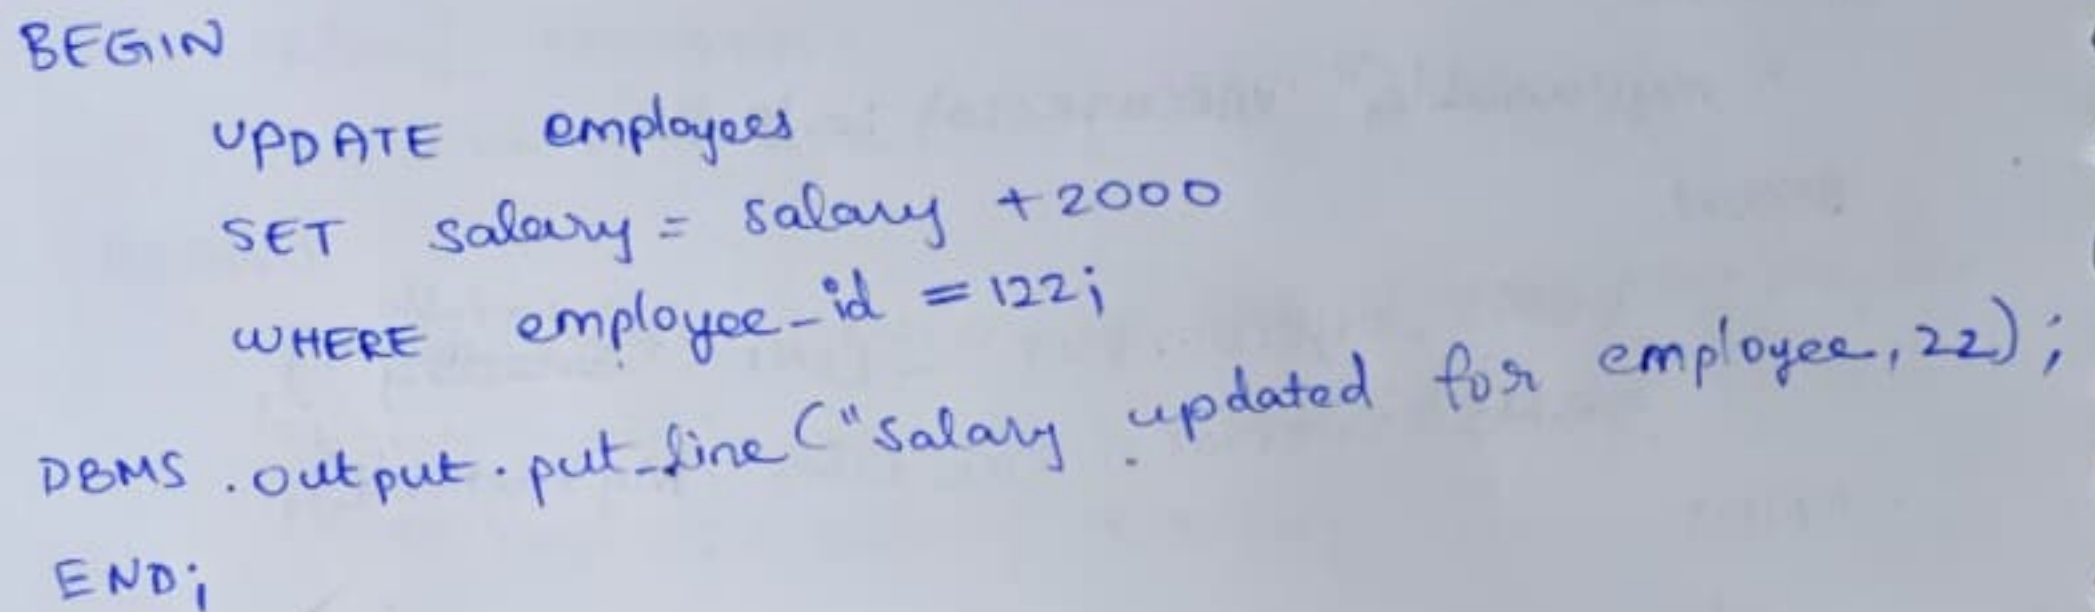 BEGIN
UPDATE employees
SET salary = salary +2000
WHERE employee_id = 122;
DBMS.output.put_line ("Salary updated for employee, 22);
END;